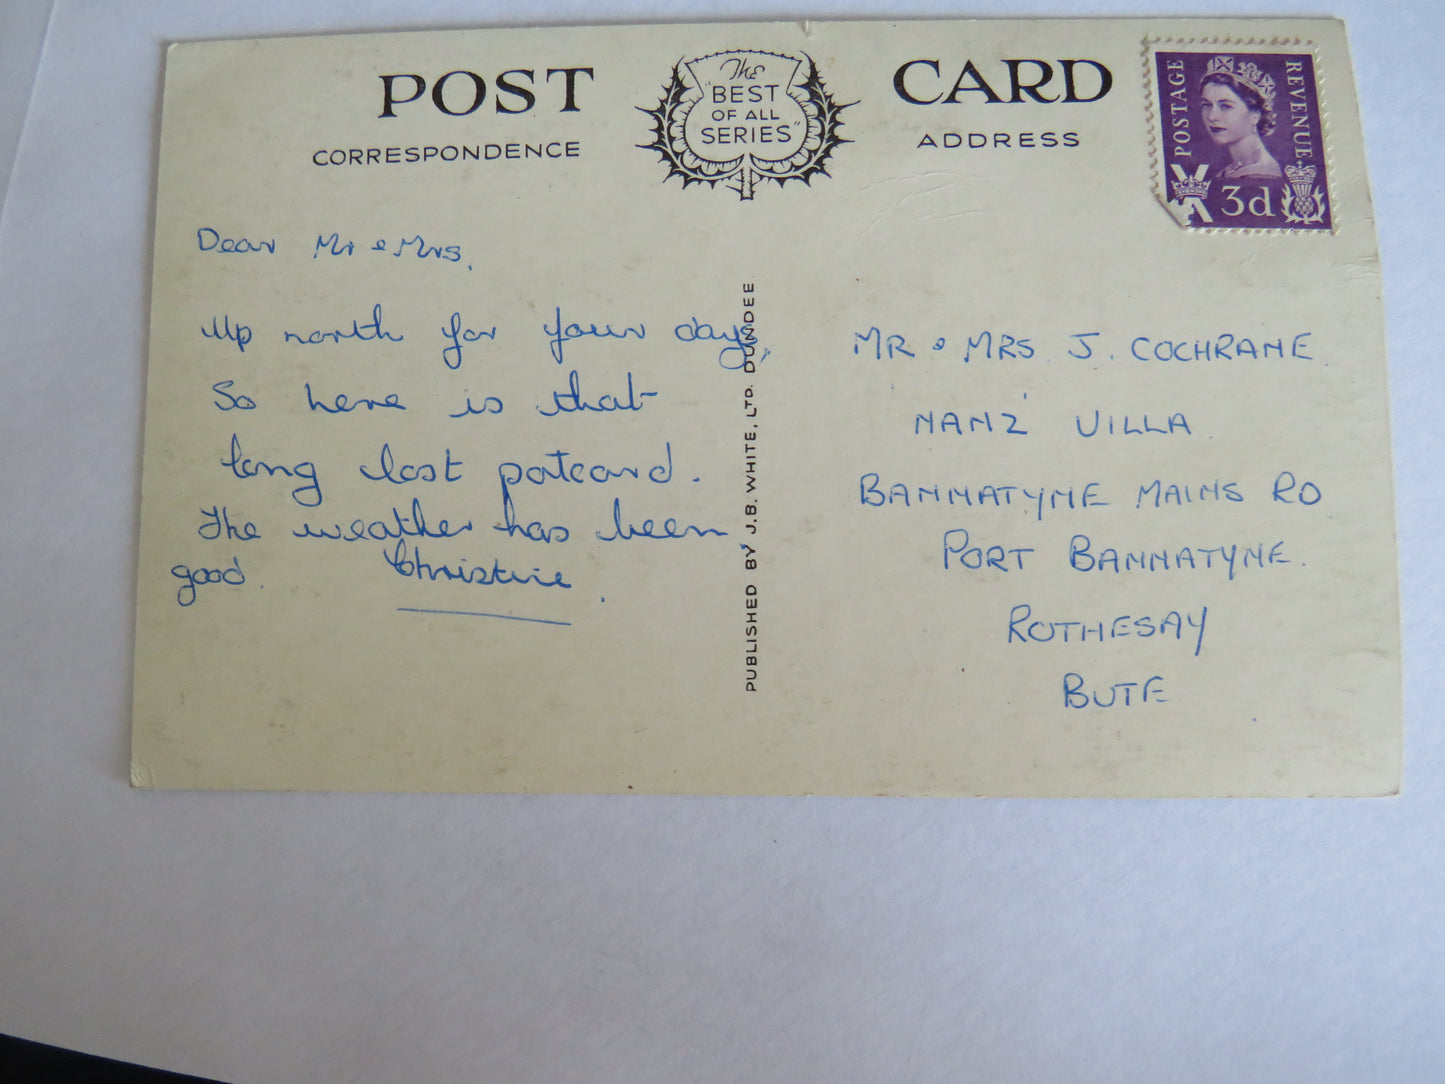 POST CARD
The
"BEST
OF ALL
SERIES"
CORRESPONDENCE
ADDRESS
POSTAGE
REVENUE
3d
Dear Mr & Mrs,
Up north for four days,
So here is that
long lost potcard.
The weather has been
good. Christine.
PUBLISHED BY J.B. WHITE, LTD. DUNDEE
MR & MRS J. COCHRANE
'NANZ' VILLA
BANNATYNE MAINS RD
PORT BANNATYNE.
ROTHESAY
BUTE